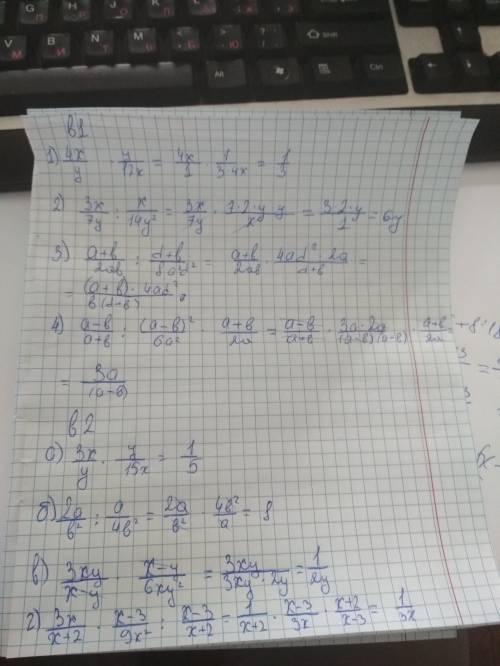 в1
1) 4x/y · y/12x = 4x/1 · 1/3·4x = 1/3
2) 3x/7y : x/14y² = 3x/7y · 7·2·y·y/x = 3·2·y/1 = 6y
3) a+b/2ab : d+b/8a²d² = a+b/2ab · 4ad²·2a/d+b =
= (a+b)·4ad²/b(d+b)
4) a-b/a+b : (a-b)²/6a² · a+b/2a = a-b/a+b · 3a·2a/(a-b)(a-b) · a+b/2a
= 3a/(a-b)
в2
а) 3x/y · y/15x = 1/5
б) 2a/b² : a/4b² = 2a/b² · 4b²/a = 8
в) 3xy/x-y · x-y/6xy² = 3xy/3xy·2y = 1/2y
г) 3x/x+2 · x-3/9x² : x-3/x+2 = 1/x+2 · x-3/3x · x+2/x-3 = 1/3x